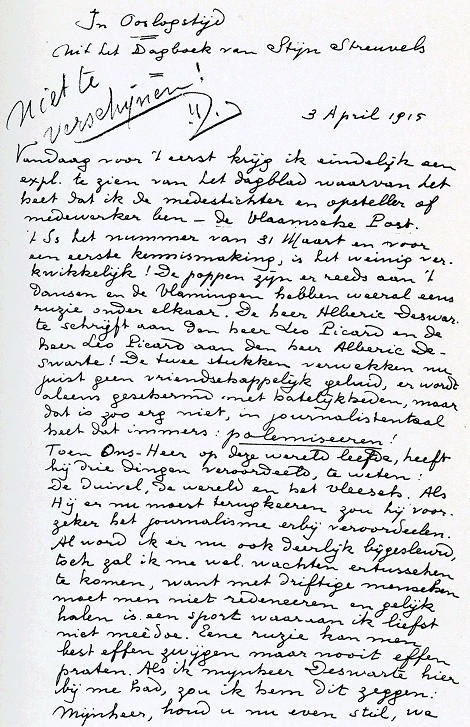 In Oorlogstijd
Uit het Dagboek van Stijn Streuvels
Niet te
verschijnen!
!!
3 April 1915
Vandaag voor 't eerst krijg ik eindelijk een
expl. te zien van het dagblad waarvan het
heet dat ik de medestichter en opsteller of
medewerker ben – de Vlaamsche Post.
't Is het nummer van 31 Maart en voor
een eerste kennismaking, is het weinig ver-
kwikkelijk! De poppen zijn er reeds aan 't
dansen en de Vlamingen hebben weeral eens
ruzie onder elkaar. De heer Alberic Deswar-
te schrijft aan den heer Leo Picard en de
heer Leo Picard aan den heer Alberic De-
swarte! De twee stukken verwekken nu
juist geen vriendschappelijk geluid, er wordt
aleens geschermd met hatelijkheden, maar
dat is zoo erg niet, in journalistentaal
heet dat immers: polemiseeren!
Toen Ons-Heer op deze wereld leefde, heeft
hij drie dingen veroordeeld, te weten:
De duivel, de wereld en het vleesch. Als
Hij er nu moest terugkeeren zou hij voor-
zeker het journalisme erbij veroordeelen.
Al word ik er nu ook deerlijk bijgesleurd,
toch zal ik me wel wachten ertusschen
te komen, want met driftige menschen
moet men niet redeneeren en gelijk
halen is een sport waaraan ik liefst
niet meêdoe. Eene ruzie kan men
best effen zwijgen maar nooit effen
praten. Als ik mynheer Deswarte hier
bij me had, zou ik hem dit zeggen:
Mijnheer, houd u nu even stil, we